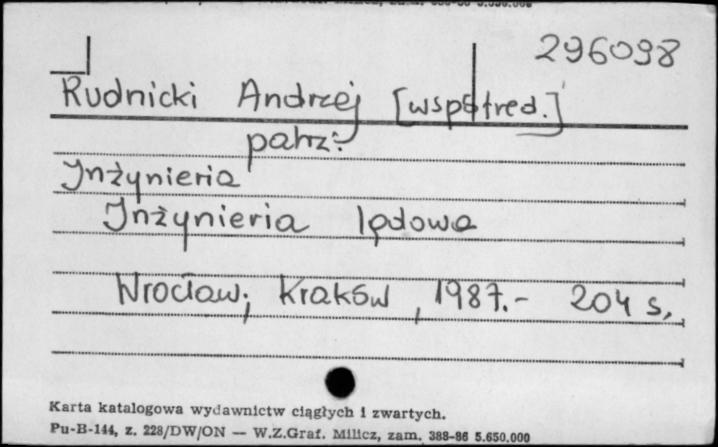 296098
Rudnicki Andrzej [współred.]
patrz:
Inżynieria
Inżynieria lądowa
Wrocław; Kraków, 1987.- 204 s.
Karta katalogowa wydawnictw ciągłych i zwartych.
Pu-B-144, z. 228/DW/ON — W.Z.Graf. Milicz, zam. 388-86 5.650.000